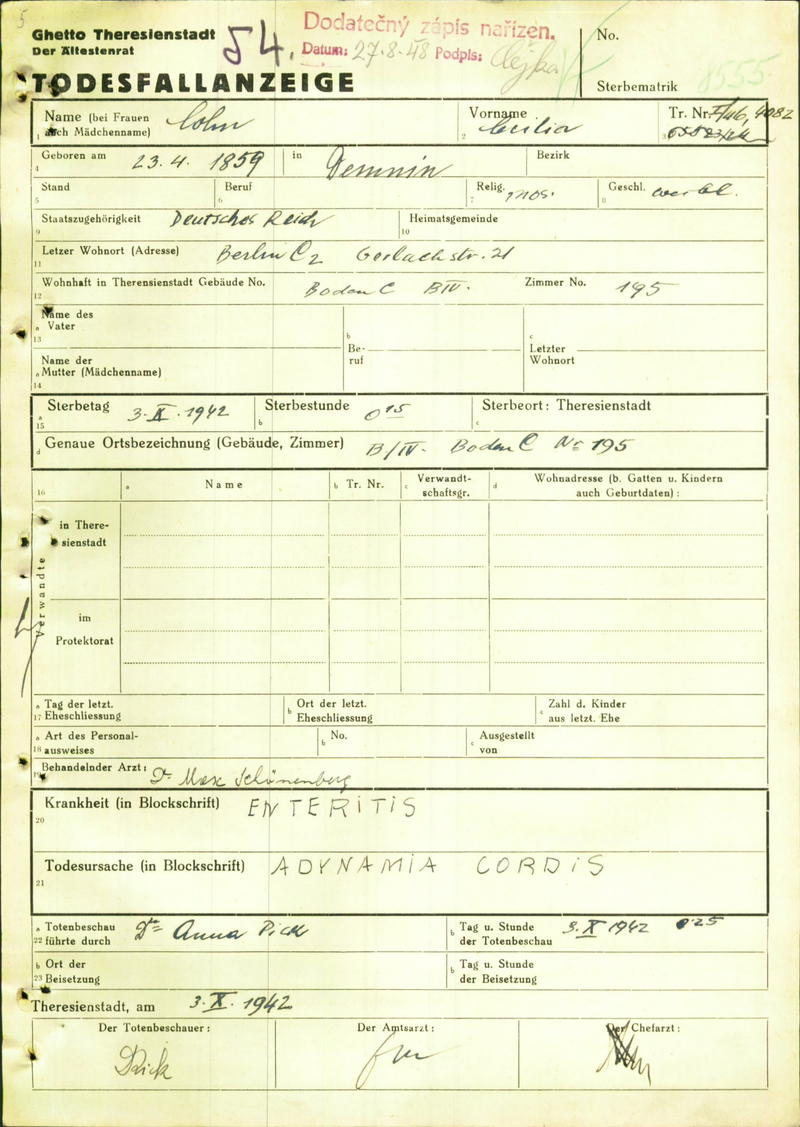 5
Ghetto Theresienstadt
Der Ältestenrat
54.
Dodatečný zápis nařízen.
Datum: 27.8.48 Podpis:
No.
Sterbematrik 8555
TODESFALLANZEIGE
Name (bei Frauen auch Mädchenname) Cohn
1
Vorname Cecilia
2
Tr. Nr. I/46, 4082
Geboren am 23.4. 1859 in Demmin Bezirk
4
Stand Beruf Relig. mos. Geschl. weibl.
5 6 7 8
Staatszugehörigkeit Deutsches Reich Heimatsgemeinde
9 10
Letzer Wohnort (Adresse) Berlin C2 Gerlachstr. 21
11
Wohnhaft in Therensienstadt Gebäude No. Boden C BIV. Zimmer No. 195
12
Name des
a Vater
13
b Beruf
c Letzter Wohnort
Name der
a Mutter (Mädchenname)
14
a Sterbetag 3.X.1942 b Sterbestunde 0 15 c Sterbeort: Theresienstadt
15
d Genaue Ortsbezeichnung (Gebäude, Zimmer) B/IV. Boden C No 195
16 a Name b Tr. Nr. c Verwandtschaftsgr. d Wohnadresse (b. Gatten u. Kindern auch Geburtdaten):
Verwandte
in Theresienstadt
im Protektorat
a Tag der letzt.
17 Eheschliessung
b Ort der letzt. Eheschliessung
c Zahl d. Kinder aus letzt. Ehe
a Art des Personal-
18 ausweises
b No.
c Ausgestellt von
19 Behandelnder Arzt: Dr Max Schönenberg
Krankheit (in Blockschrift) ENTERITIS
20
Todesursache (in Blockschrift) ADYNAMIA CORDIS
21
a Totenbeschau
22 führte durch Dr Anna Pick
b Tag u. Stunde der Totenbeschau 3.X 1942 0.25
b Ort der
23 Beisetzung
b Tag u. Stunde der Beisetzung
Theresienstadt, am 3.X.1942
Der Totenbeschauer: Der Amtsarzt: Der Chefarzt:
Pick